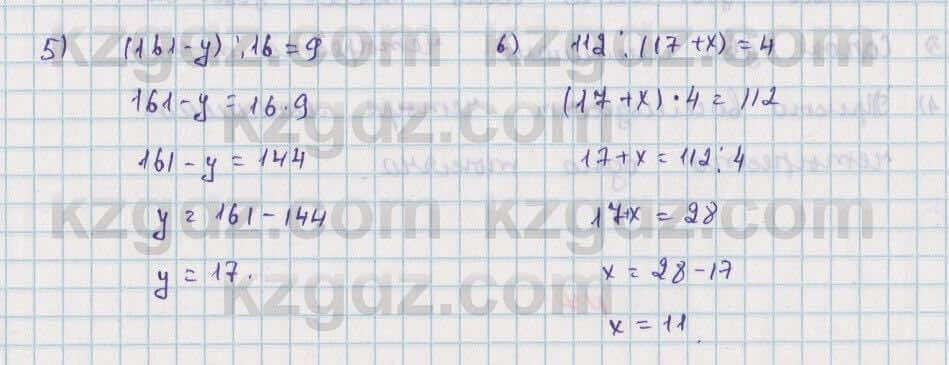 5) (161-y):16=9
161-y=16·9
161-y=144
y=161-144
y=17.
6) 112:(17+x)=4
(17+x)·4=112
17+x=112:4
17+x=28
x=28-17
x=11.
kzgdz.com
kzgdz.com
kzgdz.com
kzgdz.com
kzgdz.com